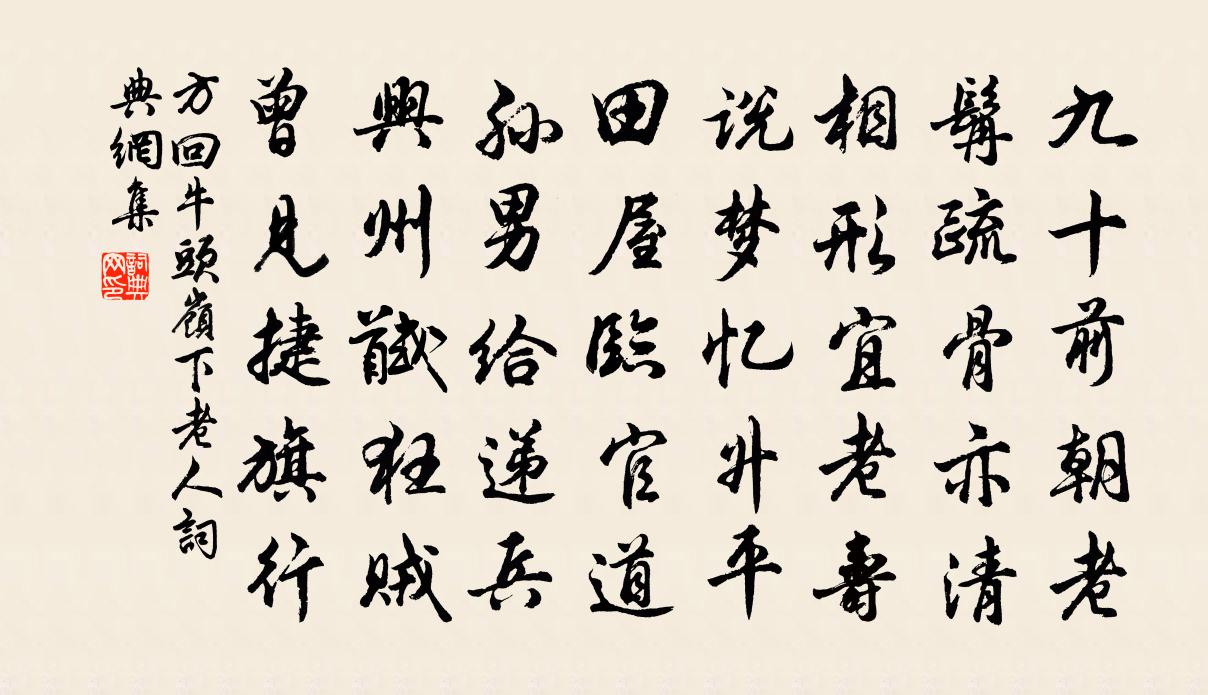 九十前朝老
髯疏骨亦清
相形宜老壽
说梦忆升平
田屋臨官道
孙男给递兵
興州馘狂贼
曾見捷旗行
方回牛頭嶺下老人詞
典網集
詞典网印